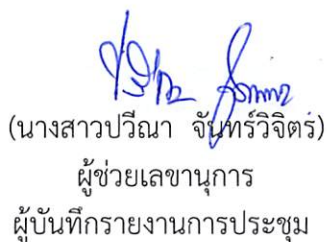 (นางสาวปวีณา จันทร์วิจิตร)
ผู้ช่วยเลขานุการ
ผู้บันทึกรายงานการประชุม